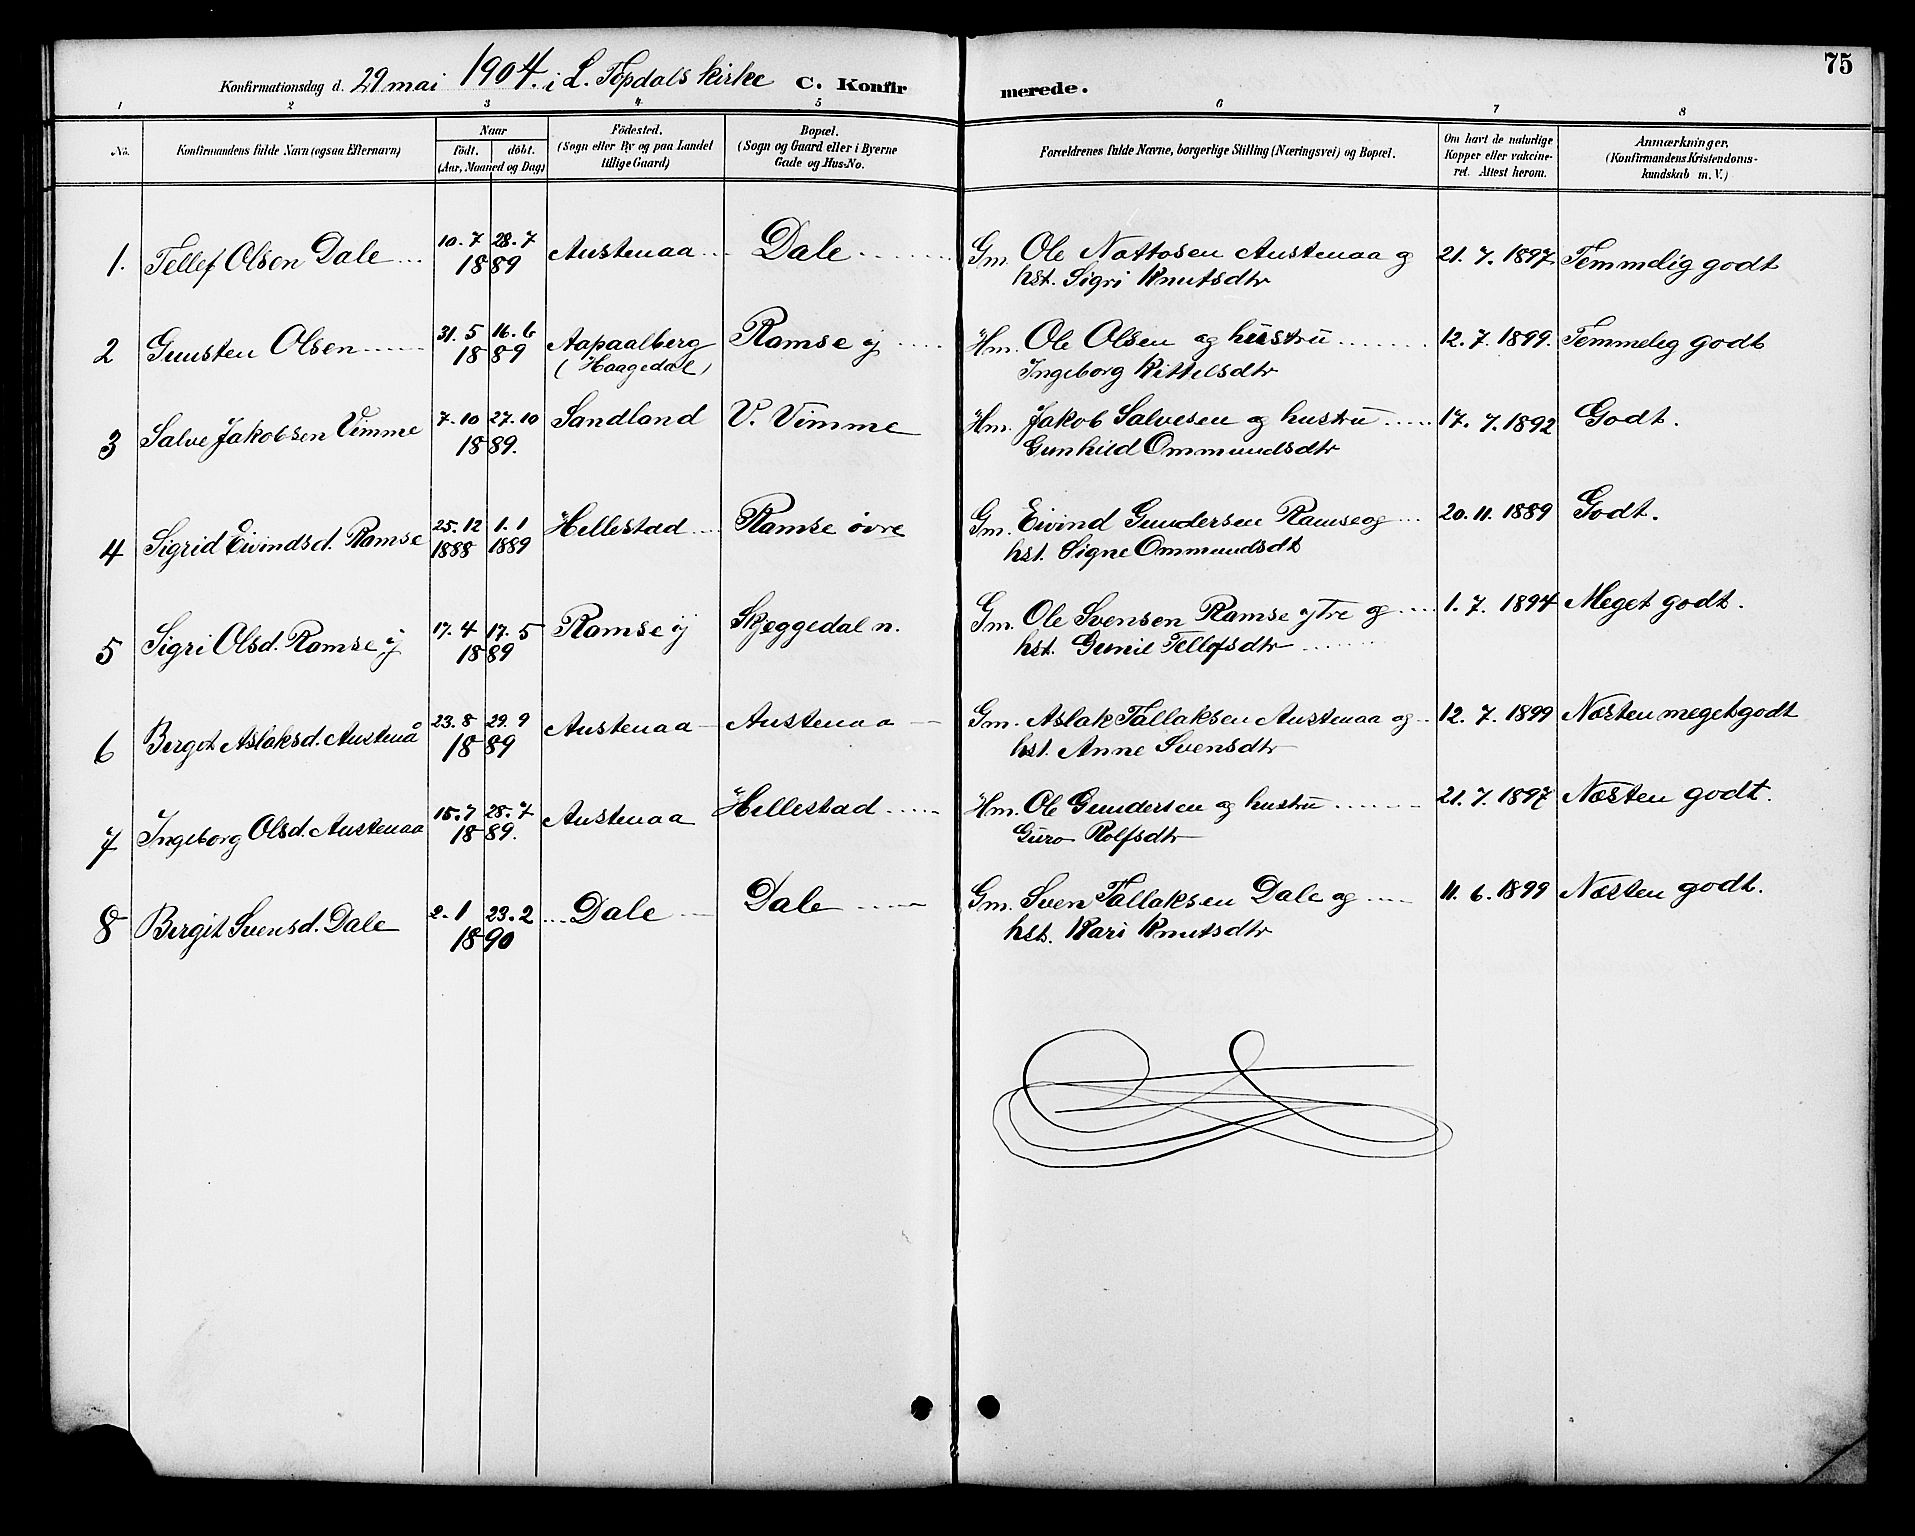 75
Konfirmationsdag d. 29 mai 1904. i L. Topdals kirke C. Konfirmerede.
1 2 3 4 5 6 7 8
No. Konfirmandens fulde Navn (ogsaa Efternavn) Naar födt. döbt. (Aar, Maaned og Dag) Födested. (Sogn eller By og paa Landet tillige Gaard) Bopæl. (Sogn og Gaard eller i Byerne Gade og Hus-No. Forældrenes fulde Navne, borgerlige Stilling (Næringsvei) og Bopæl. Om havt de naturlige Kopper eller vakcineret. Attest herom. Anmærkninger. (Konfirmandens Kristendomskundskab m. V.)
1. Tellef Olsen Dale 10.7 28.7 1889 Austenaa Dale Gm. Ole Nottosen Austenaa og 21.7.1897 Temmelig godt
hst. Sigri Knutsdtr
2 Gunsten Olsen 31.5 16.6 1889 Aapaalberg (Haagedal) Ramse y Hm. Ole Olsen og hustru 12.7.1899. Temmelig godt
Ingeborg Kittelsdtr
3 Salve Jakobsen Vimme 7.10 27.10 1889. Sandland V. Vimme Hm. Jakob Salvesen og hustru 17.7.1892 Godt.
Gunhild Ommundsdtr
4 Sigrid Eivindsd. Ramse 25.12 1888 1.1 1889 Hellestad Ramse övre Gm. Eivind Gundersen Ramse og 20.11.1889 Godt.
hst. Signe Ommundsdt
5 Sigri Olsd. Ramse y 17.4 17.5 1889 Ramse y Skjeggedal n. Gm. Ole Svensen Ramse ytre og 1.7.1894 Meget godt.
hst. Gunil Tellefsdtr
6 Bergit Aslaksd. Austenå 23.8 29.9 1889 Austenaa Austenaa Gm. Aslak Tallaksen Austenaa og 12.7.1899 Næsten meget godt
hst. Anne Svensdtr
7 Ingeborg Olsd. Austenaa 15.7 28.7 1889. Austenaa Hellestad Hm. Ole Gundersen og hustru 21.7.1897 Næsten godt.
Guro Rolfsdtr
8 Bergit Svensd. Dale 2.1 23.2 1890 Dale Dale Gm. Sven Tallaksen Dale og 11.6.1899 Næsten godt.
hst. Kari Knutsdtr